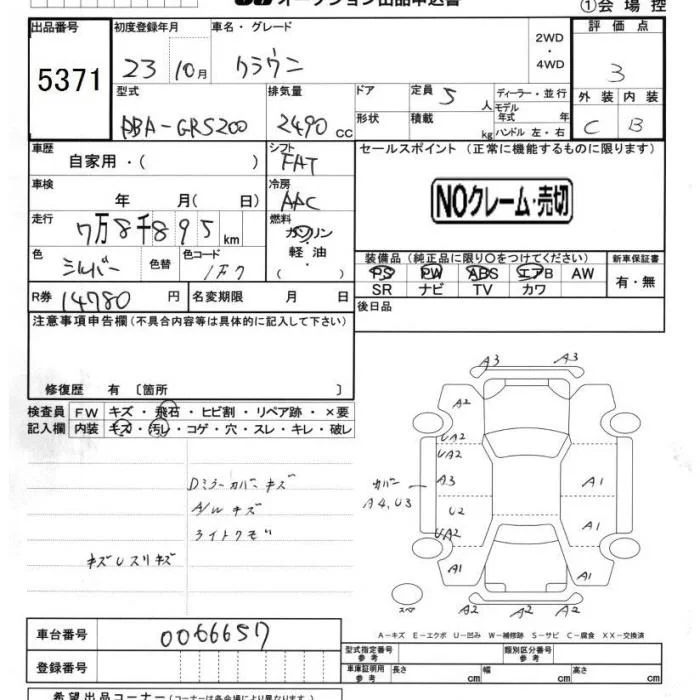 オークション出品申込書
①会場控
出品番号 初度登録年月 車名・グレード 2WD ・ 4WD 評価点
5371 23 10月 クラウン 3
型式 排気量 ドア 定員 5 人 ディーラー・並行 外装 内装
DBA-GRS200 2490 cc 形状 積載 kg モデル年式 年 ハンドル 左・右 C B
車歴 自家用・( ) シフト FAT セールスポイント (正常に機能するものに限ります)
車検 年 月( 日) 冷房 AAC NOクレーム・売切
走行 7万8千895km 燃料 ガソリン
色 シルバー 色替 色コード 1F7 軽油 ( ) 装備品 (純正品に限り○をつけてください) 新車保証書
PS PW ABS エアB AW 有・無
R券 14780 円 名変期限 月 日 SR ナビ TV カワ
注意事項申告欄(不具合内容等は具体的に記入して下さい) 後日品
修復歴 有 〔箇所 〕
検査員 FW キズ・飛石・ヒビ割・リペア跡・×要
記入欄 内装 キズ・汚レ・コゲ・穴・スレ・キレ・破レ
A3 A3
A2
UA2
UA2
Dミラーカバーキズ A3 A1
カバー
A/Wキズ A4,U3 U2
ライトクモリ A1
UA2
キズUスリキズ A1 A1
スペア A2 A2 A2
A-キズ E-エクボ U-凹み W-補修跡 S-サビ C-腐食 XX-交換済
車台番号 0066657
型式指定番号 参考 類別区分番号 参考
登録番号 車庫証明用 参考 長さ cm 幅 cm 高さ cm
希望出品コーナー(コーナーは各会場により異なります。)